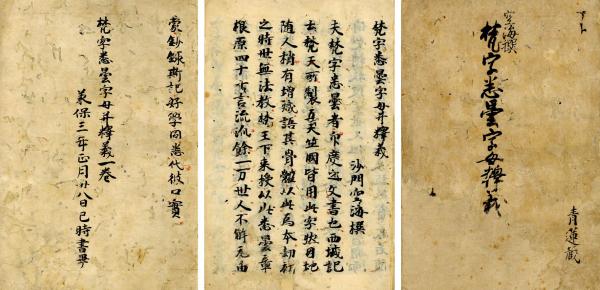 空海撰
梵字悉曇字母釋義
青蓮蔵
梵字悉曇字母并釋義
沙門空海撰
夫梵字悉曇者印度之文書也西域記
云梵天所製五天竺國皆用此字然因地
随人稍有増減語其骨體以此為本劫初
之時世無法教梵王下来授以此悉曇章
根原四十七言流派餘一万世人不解元由
蒙鈔録斯記好学同志代彼口實
梵字悉曇字母并釋義一巻
承保三年正月廿八日巳時書畢